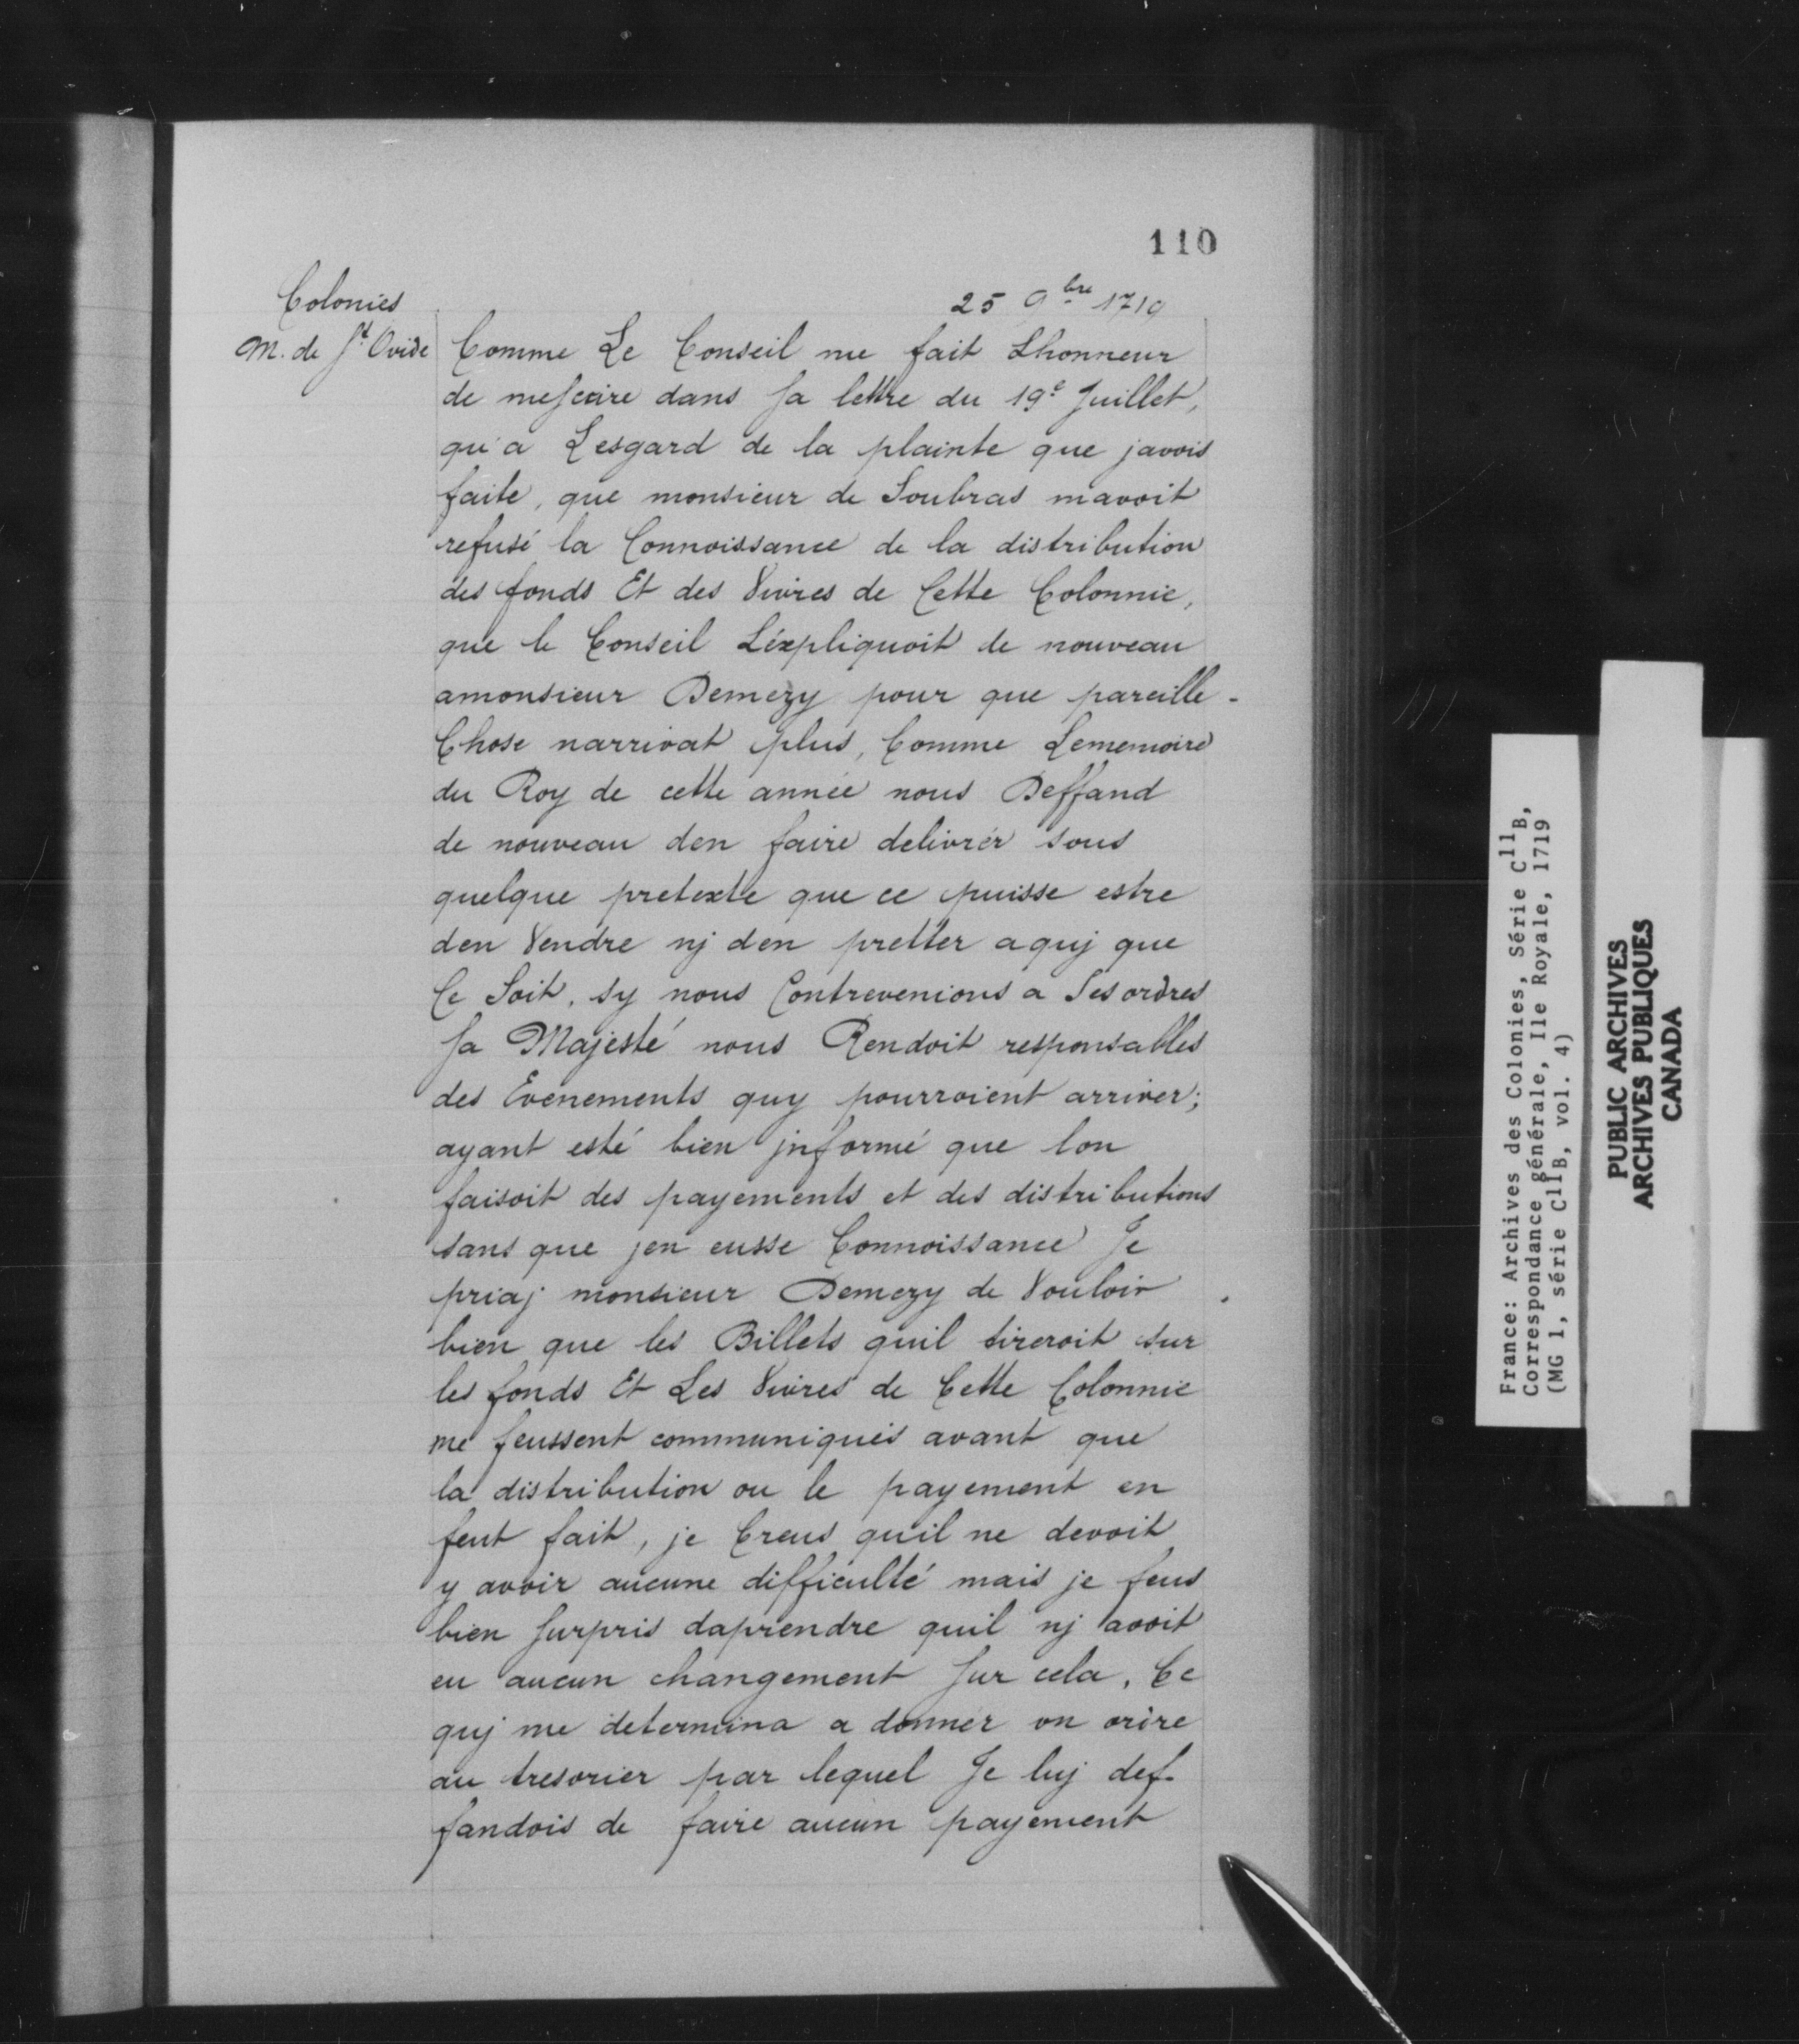 110
Colonies
25 9bre 1719
M. de St Ovide
Comme Le Conseil me fait Lhonneur
de mescrire dans sa lettre du 19e Juillet,
qu'a Lesgard de la plainte que javois
faite, que monsieur de Soubras mavoit
refusé la Connoissance de la distribution
des fonds Et des Vivres de Cette Colonnie,
que le Conseil Léxpliquoit de nouveau
amonsieur Demezy pour que pareille-
Chose narrivat plus, Comme Lememoire
du Roy de cette année nous Deffand
de nouveau den faire delivrér sous
quelque pretexte que ce puisse estre
den Vendre nj den pretter a quj que
Ce Soit, sy nous Contrevenions a Ses ordres
Sa Majesté nous Rendoit responsables
des Evenements quy pourroient arriver;
ayant esté bien jnformé que lon
faisoit des payements et des distributions
sans que jen eusse Connoissance Je
priaj monsieur Demezy de Vouloir
bien que les Billets quil tireroit sur
les fonds Et Les Vivres de Cette Colonnie
me feussent communiqués avant que
la distribution ou le payement en
feut fait, je Creus quil ne devoit
y avoir aucune difficulté mais je feus
bien surpris daprendre quil nj avoit
eu aucun changement sur cela, Ce
quj me determina a donner un ordre
au tresorier par lequel Je luj def-
fandois de faire aucun payement
France: Archives des Colonies, Série C11B,
Correspondance générale, Ile Royale, 1719
(MG 1, série C11B, vol. 4)
PUBLIC ARCHIVES
ARCHIVES PUBLIQUES
CANADA